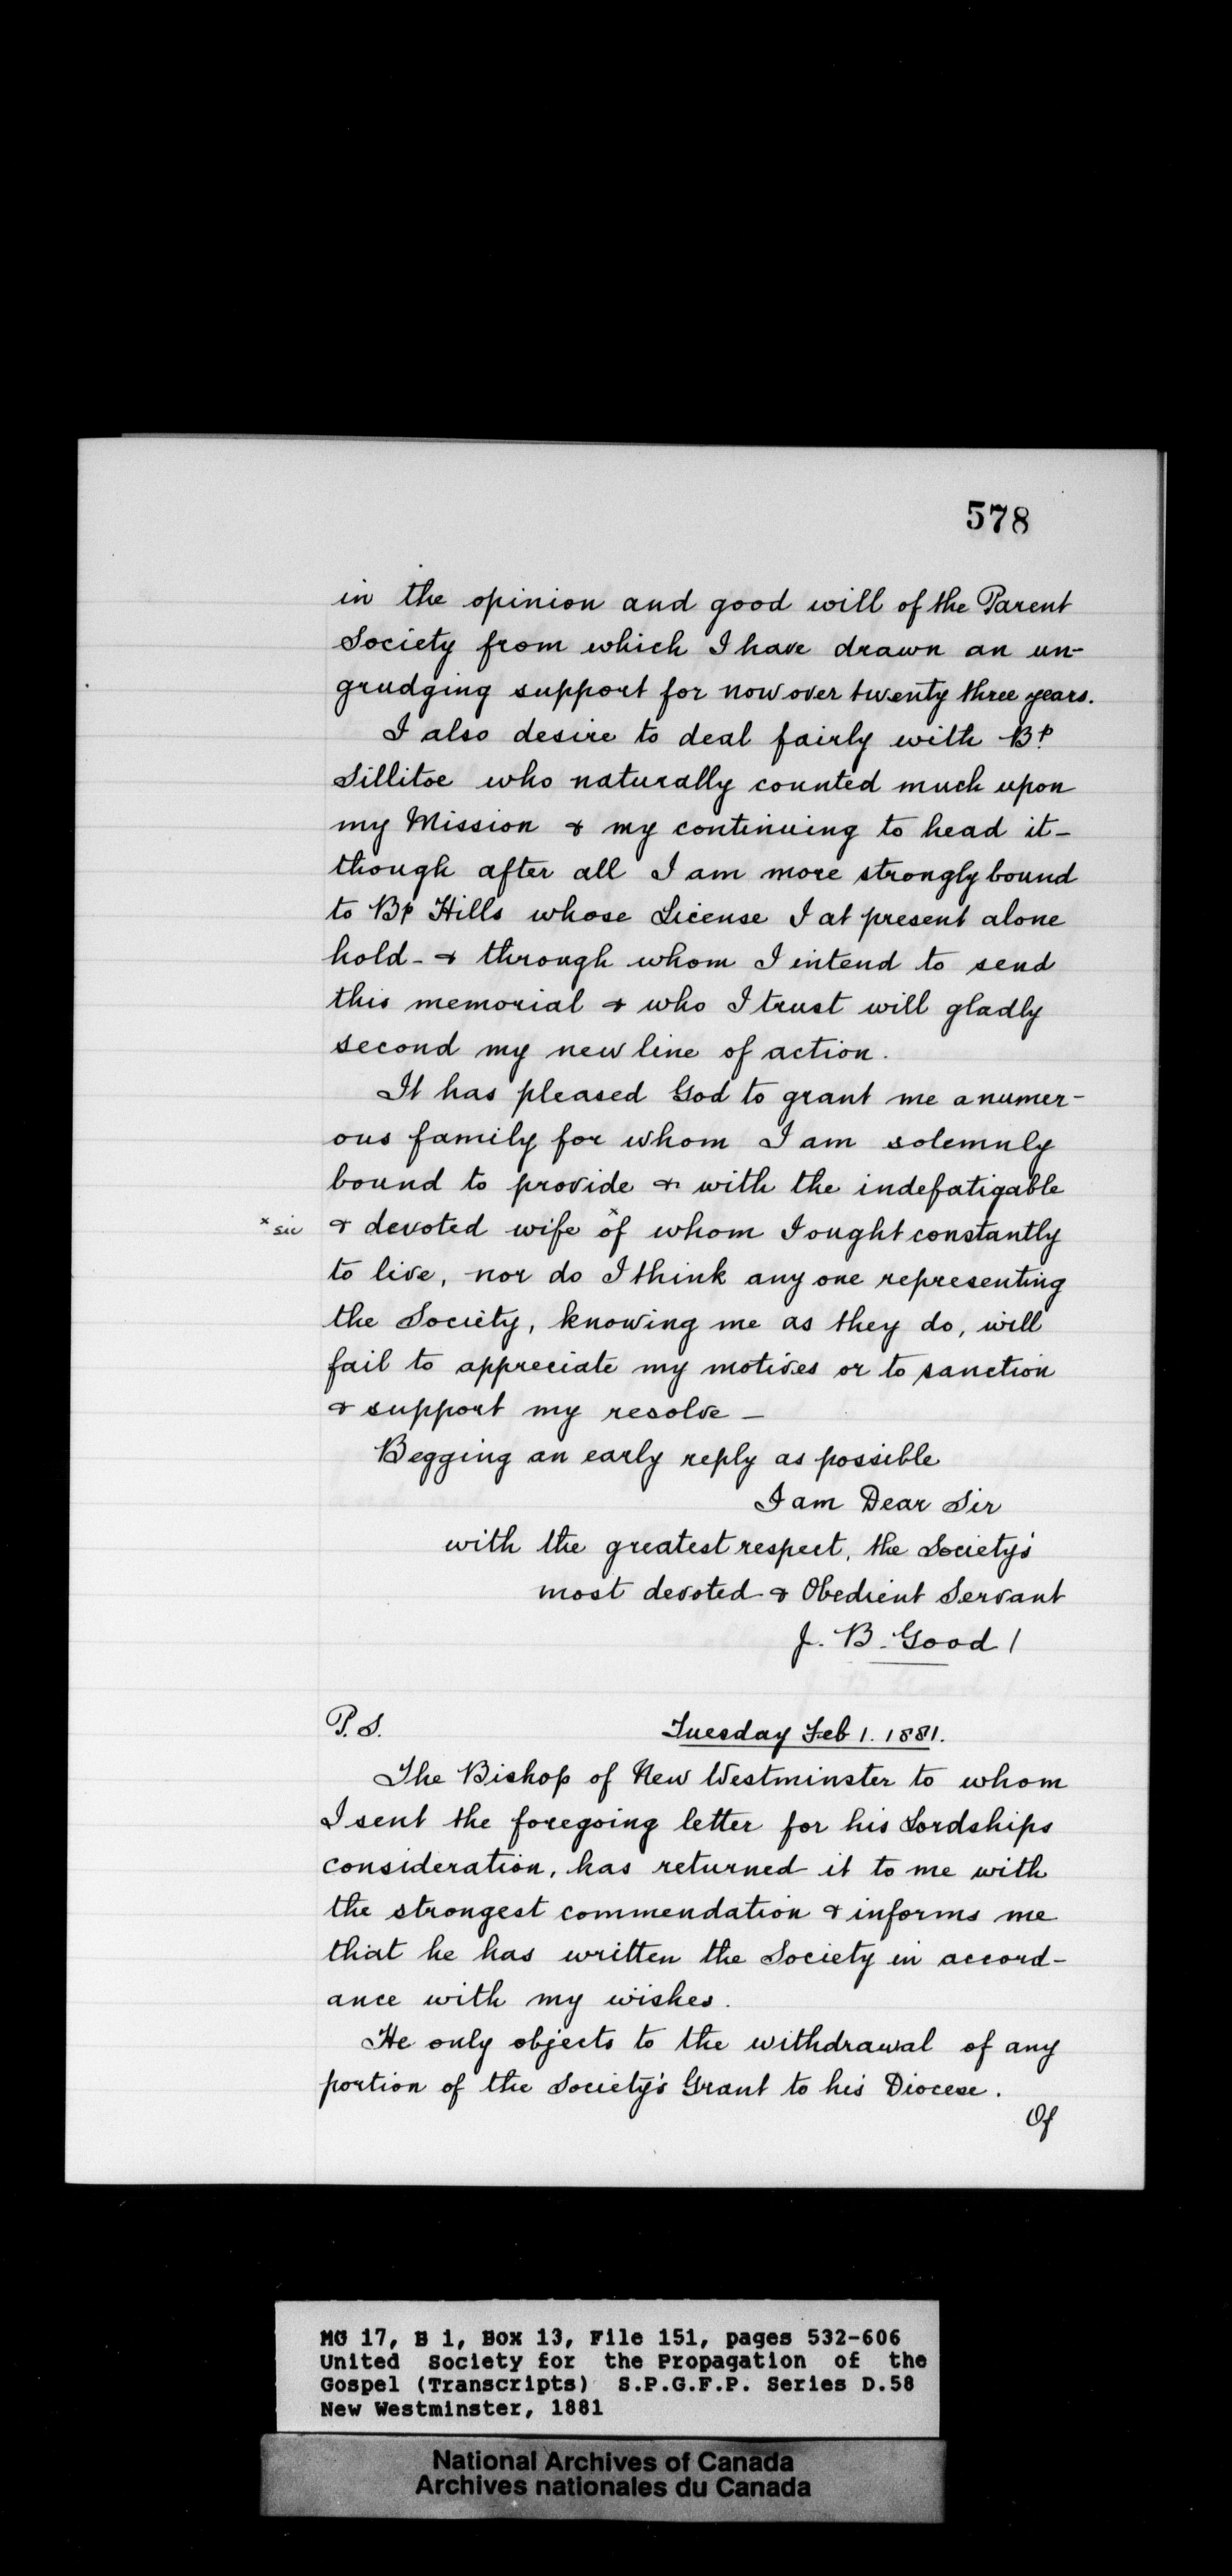 578
in the opinion and good will of the Parent
Society from which I have drawn an un-
grudging support for now over twenty three years.
I also desire to deal fairly with Bp.
Sillitoe who naturally counted much upon
my Mission & my continuing to head it -
though after all I am more strongly bound
to Bp Hills whose License I at present alone
hold - & through whom I intend to send
this memorial & who I trust will gladly
second my new line of action.
It has pleased God to grant me a numer-
ous family for whom I am solemnly
bound to provide & with the indefatigable
x sic & devoted wife xof whom I ought constantly
to live, nor do I think any one representing
the Society, knowing me as they do, will
fail to appreciate my motives or to sanction
& support my resolve -
Begging an early reply as possible
I am Dear Sir
with the greatest respect, the Society's
most devoted & Obedient Servant
J. B. Good /
P.S. Tuesday Feb 1. 1881.
The Bishop of New Westminster to whom
I sent the foregoing letter for his Lordships
consideration, has returned it to me with
the strongest commendation & informs me
that he has written the Society in accord-
ance with my wishes.
He only objects to the withdrawal of any
portion of the Society's Grant to his Diocese.
Of
MG 17, B 1, Box 13, File 151, pages 532-606
United Society for the Propagation of the
Gospel (Transcripts) S.P.G.F.P. Series D.58
New Westminster, 1881
National Archives of Canada
Archives nationales du Canada